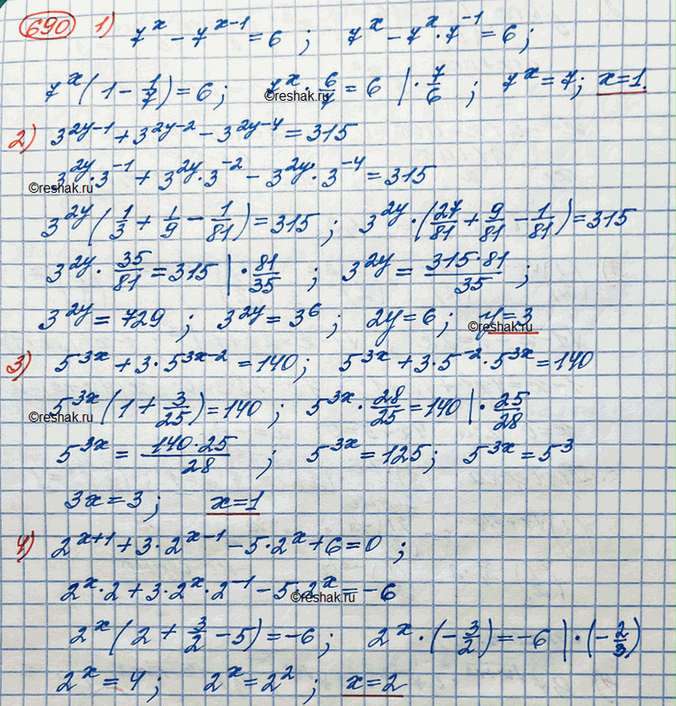 690 1) 7^x − 7^(x−1) = 6 ; 7^x − 7^x · 7^(−1) = 6 ;
7^x (1 − 1/7) = 6 ; 7^x · 6/7 = 6 | · 7/6 ; 7^x = 7; x=1.
©reshak.ru
2) 3^(2y−1) + 3^(2y−2) − 3^(2y−4) = 315
3^(2y) · 3^(−1) + 3^(2y) · 3^(−2) − 3^(2y) · 3^(−4) = 315
©reshak.ru
3^(2y) (1/3 + 1/9 − 1/81) = 315 ; 3^(2y) · (27/81 + 9/81 − 1/81) = 315
3^(2y) · 35/81 = 315 | · 81/35 ; 3^(2y) = (315·81)/35 ;
3^(2y) = 729 ; 3^(2y) = 3^6 ; 2y = 6 ; y=3
©reshak.ru
3) 5^(3x) + 3 · 5^(3x−2) = 140 ; 5^(3x) + 3 · 5^(−2) · 5^(3x) = 140
5^(3x) (1 + 3/25) = 140 ; 5^(3x) · 28/25 = 140 | · 25/28
©reshak.ru
5^(3x) = (140·25)/28 ; 5^(3x) = 125 ; 5^(3x) = 5^3
3x = 3 ; x=1
4) 2^(x+1) + 3 · 2^(x−1) − 5 · 2^x + 6 = 0 ;
2^x · 2 + 3 · 2^x · 2^(−1) − 5 · 2^x = −6
©reshak.ru
2^x (2 + 3/2 − 5) = −6 ; 2^x · (−3/2) = −6 | · (−2/3)
2^x = 4 ; 2^x = 2^2 ; x=2